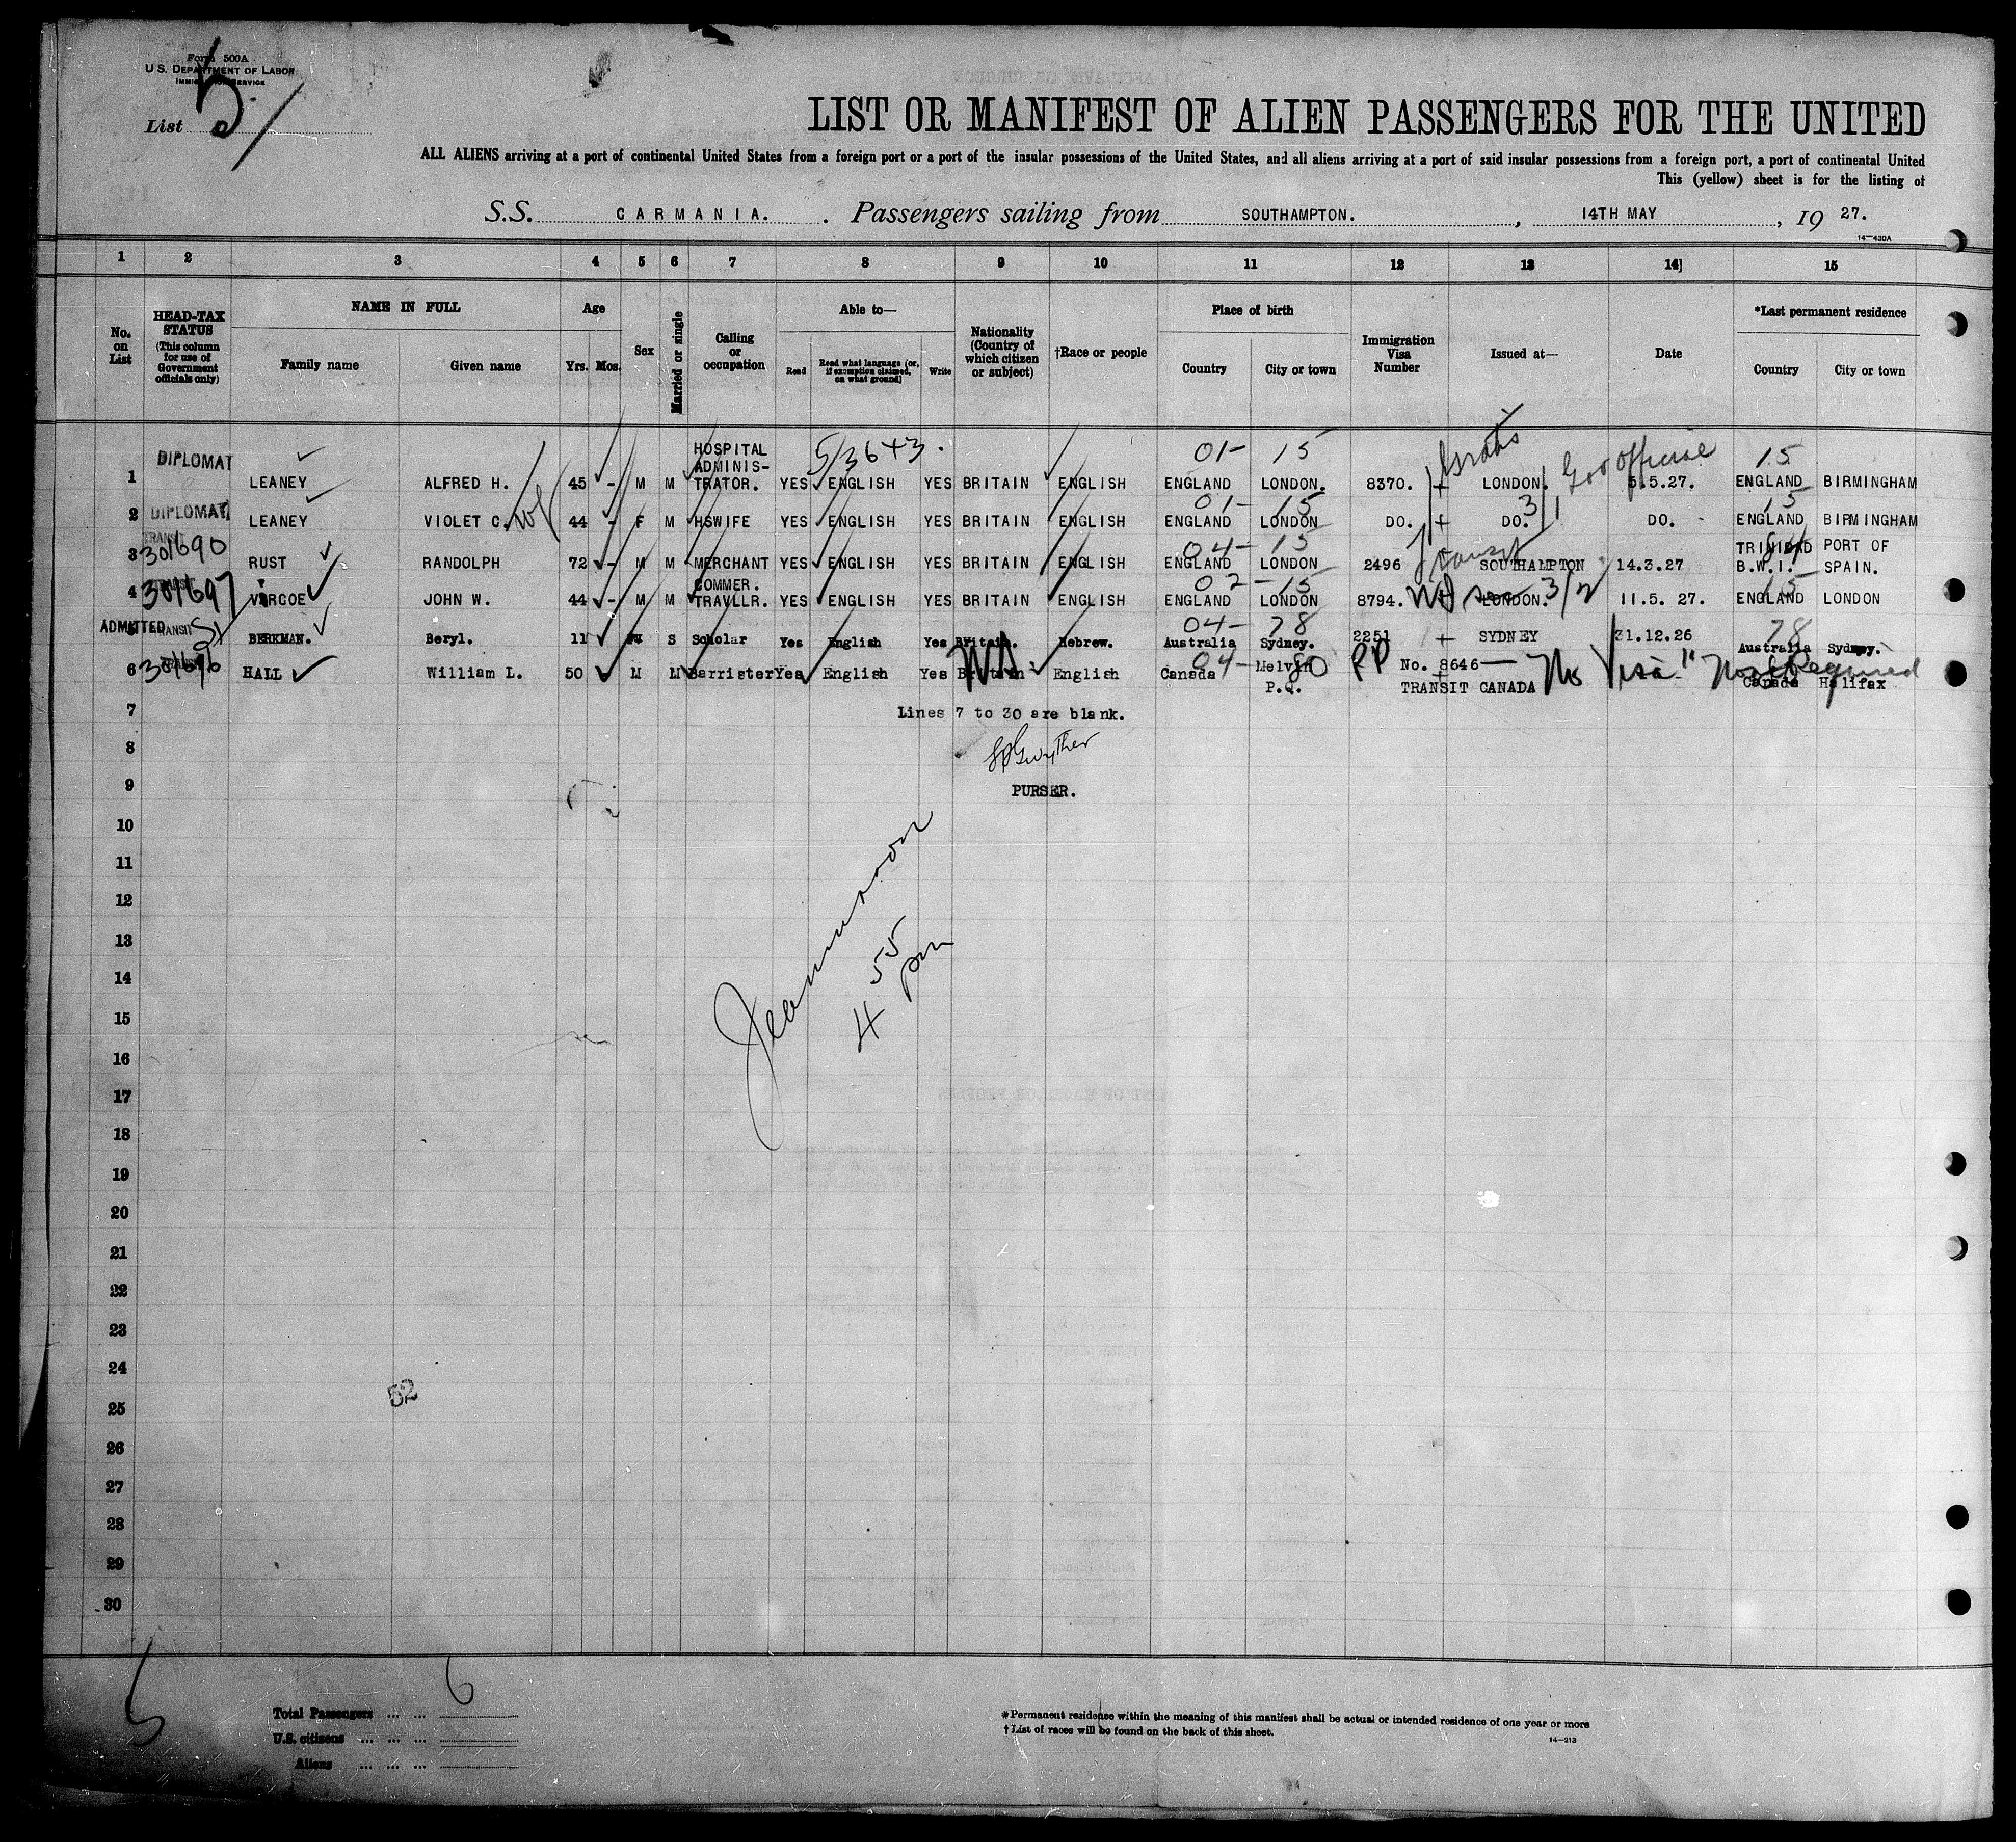 Form 500A
U. S. DEPARTMENT OF LABOR
IMMIGRATION SERVICE
List 5
LIST OR MANIFEST OF ALIEN PASSENGERS FOR THE UNITED
ALL ALIENS arriving at a port of continental United States from a foreign port or a port of the insular possessions of the United States, and all aliens arriving at a port of said insular possessions from a foreign port, a port of continental United
This (yellow) sheet is for the listing of
S.S. CARMANIA. Passengers sailing from SOUTHAMPTON. , 14TH MAY , 19 27.
14—430A
1 2 3 4 5 6 7 8 9 10 11 12 13 14 15
No. on List
HEAD-TAX STATUS (This column for use of Government officials only)
NAME IN FULL
Family name Given name
Age
Yrs. Mos.
Sex
Married or single
Calling or occupation
Able to—
Read Read what language (or, if exemption claimed, on what ground) Write
Nationality (Country of which citizen or subject)
†Race or people
Place of birth
Country City or town
Immigration Visa Number
Issued at—
Date
*Last permanent residence
Country City or town
5/3643. 01- 15 Gov Official 15
1 DIPLOMAT LEANEY ALFRED H. 45 - M M HOSPITAL ADMINIS-TRATOR. YES ENGLISH YES BRITAIN ENGLISH ENGLAND LONDON. 8370. LONDON. 5.5.27. ENGLAND BIRMINGHAM
01- 15 3/1 15
2 DIPLOMAT LEANEY VIOLET C. Wf 44 - F M HSWIFE YES ENGLISH YES BRITAIN ENGLISH ENGLAND LONDON DO. DO. DO. ENGLAND BIRMINGHAM
TRANSIT 04- 15 Transit 84
3 301690 RUST RANDOLPH 72 - M M MERCHANT YES ENGLISH YES BRITAIN ENGLISH ENGLAND LONDON 2496 SOUTHAMPTON 14.3.27 TRINIDAD B.W.I. PORT OF SPAIN.
02- 15 3/2 15
4 301697 VARCOE JOHN W. 44 - M M COMMER. TRAVLLR. YES ENGLISH YES BRITAIN ENGLISH ENGLAND LONDON 8794. LONDON. 11.5. 27. ENGLAND LONDON
04- 78 78
5 ADMITTED TRANSIT BERKMAN. Beryl. 11 S Scholar Yes English Yes Britain. Hebrew. Australia Sydney. 2251 SYDNEY 31.12.26 Australia Sydney.
04- 80 PP No Visa Required
6 301696 HALL William L. 50 M M Barrister Yes English Yes Britain English Canada Melvin P.Q. No. 8646— TRANSIT CANADA Canada Halifax
7 Lines 7 to 30 are blank.
8
9 PURSER.
10
11
12
13
14
15 4 55 pm
16
17
18
19
20
21
22
23
24
25 52
26
27
28
29
30
5
Total Passengers ... ... 6
U.S. citizens ... ... ...
Aliens ... ... ...
*Permanent residence within the meaning of this manifest shall be actual or intended residence of one year or more
† List of races will be found on the back of this sheet.
14—213